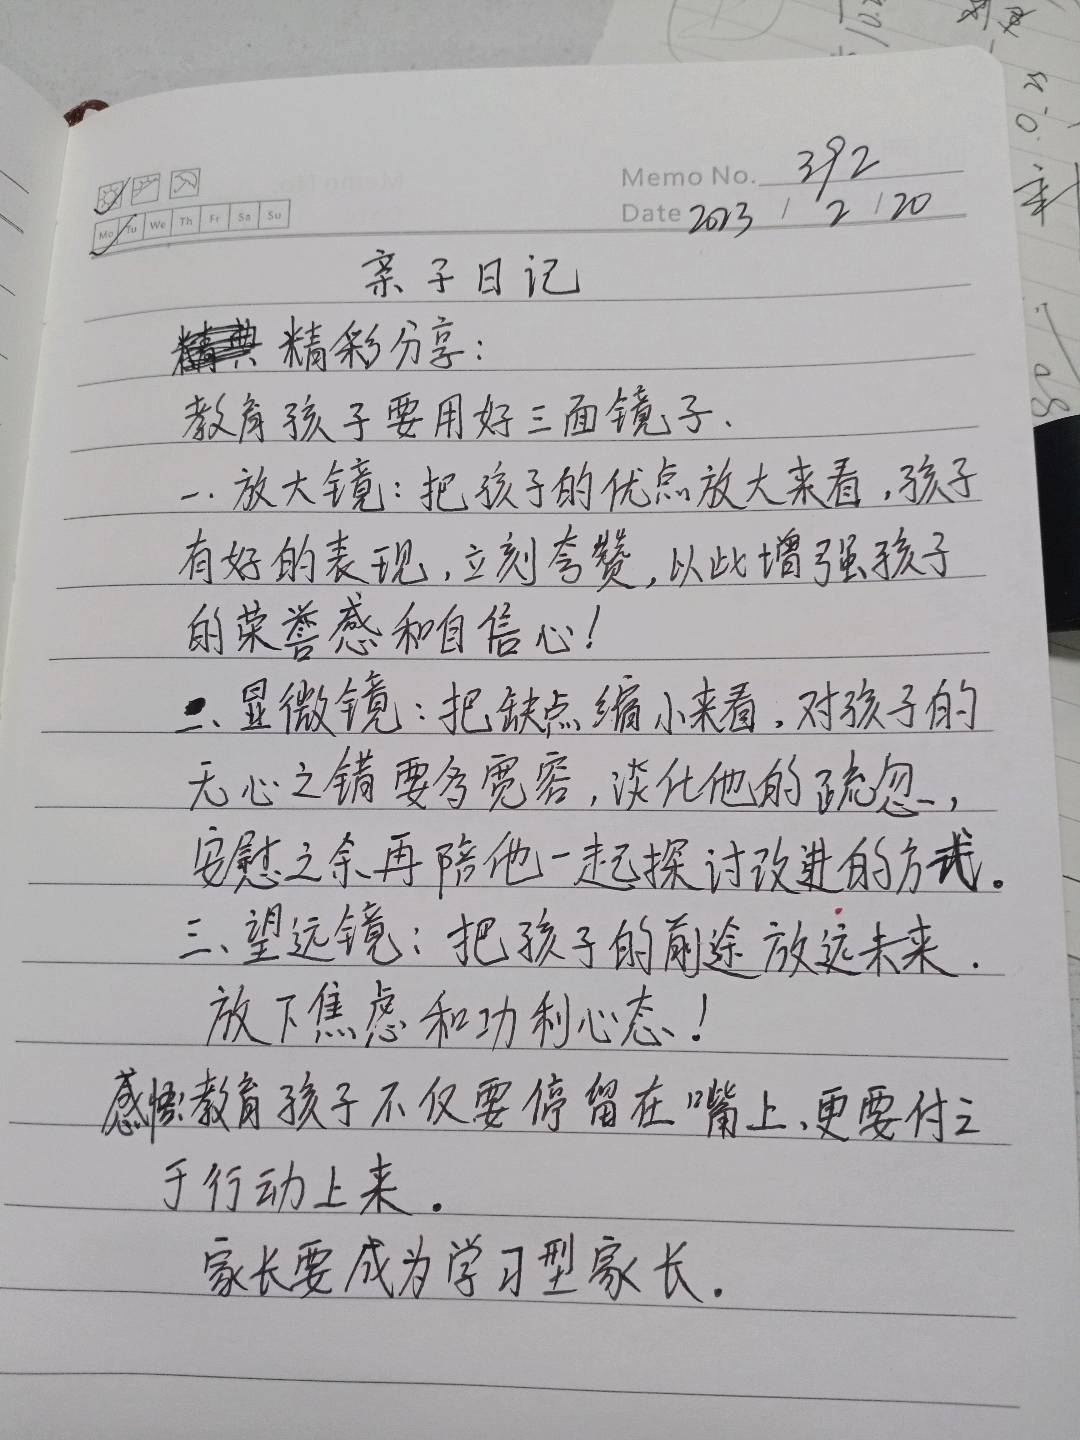 Memo No. 392
Mo Tu We Th Fr Sa Su
Date 2023 / 2 / 20
亲子日记
精彩分享：
教育孩子要用好三面镜子.
一.放大镜：把孩子的优点放大来看,孩子
有好的表现,立刻夸赞,以此增强孩子
的荣誉感和自信心!
二、显微镜：把缺点缩小来看.对孩子的
无心之错要多宽容,淡化他的疏忽,
安慰之余再陪他一起探讨改进的方式.
三、望远镜：把孩子的前途放远未来.
放下焦虑和功利心态!
感悟:教育孩子不仅要停留在嘴上、更要付之
于行动上来.
家长要成为学习型家长.